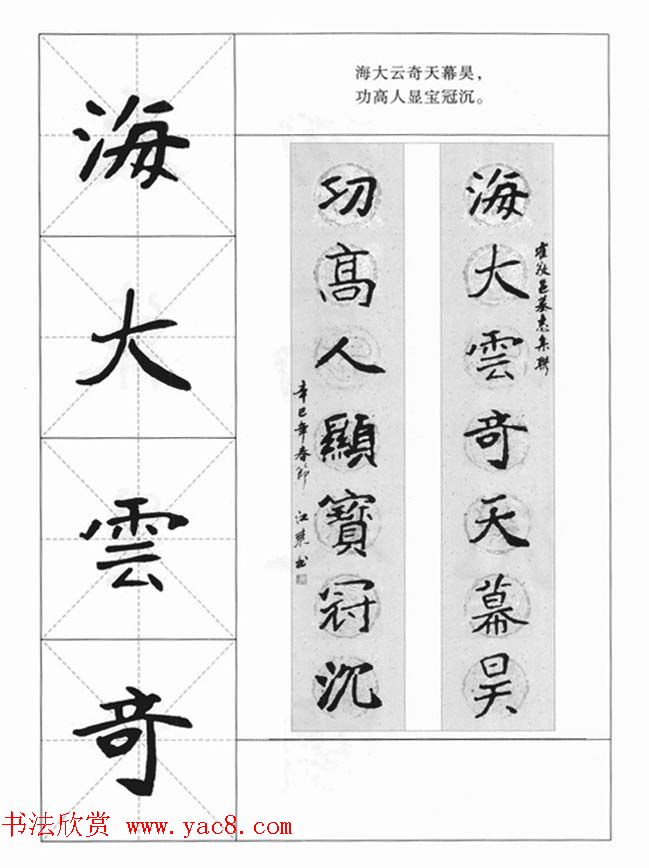 海大云奇天幕昊，
功高人显宝冠沉。
海
大
雲
奇
海大雲奇天幕昊
崔敬邕墓志集聯
功高人顯寶冠沉
辛巳年春節 江東書
书法欣赏 www.yac8.com